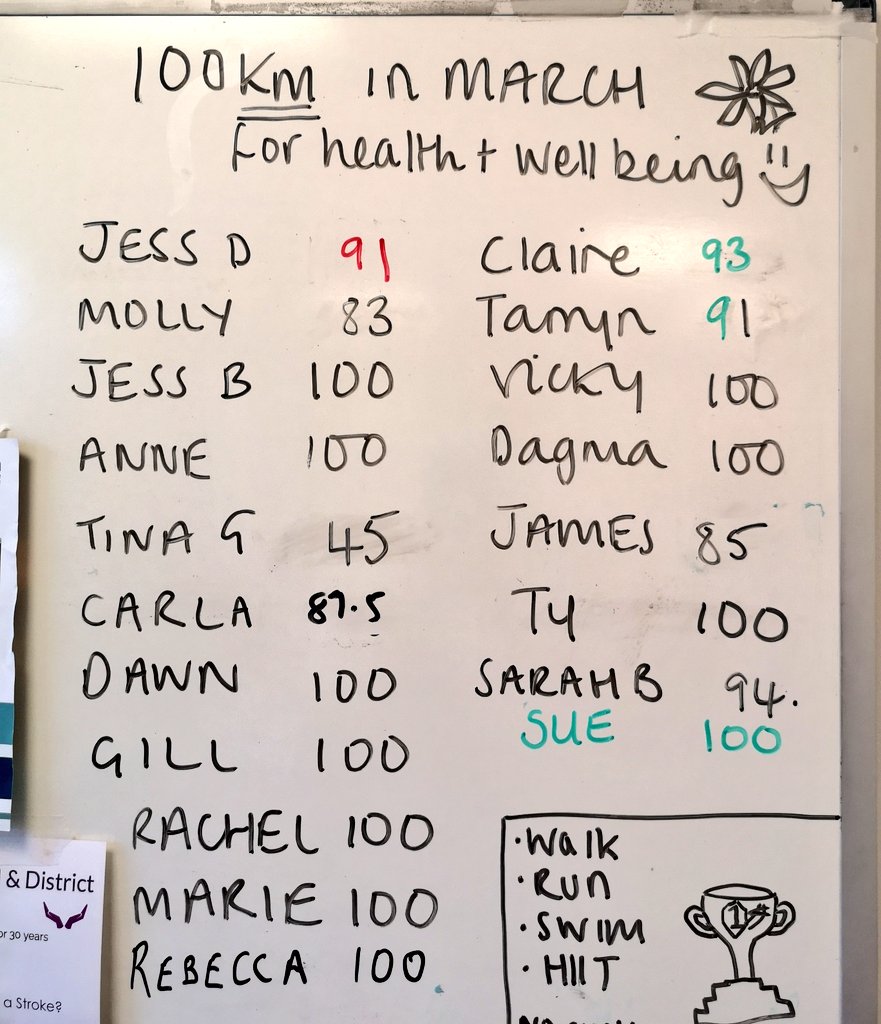 100KM in MARCH
for health + well being
JESS D 91
MOLLY 83
JESS B 100
ANNE 100
TINA G 45
CARLA 87.5
DAWN 100
GILL 100
RACHEL 100
MARIE 100
REBECCA 100
Claire 93
Tamyn 91
Vicky 100
Dagma 100
JAMES 85
Ty 100
SARAH B 94.
SUE 100
· Walk
· RUN
· SWIM
· HIIT
1st
& District
or 30 years
a Stroke?